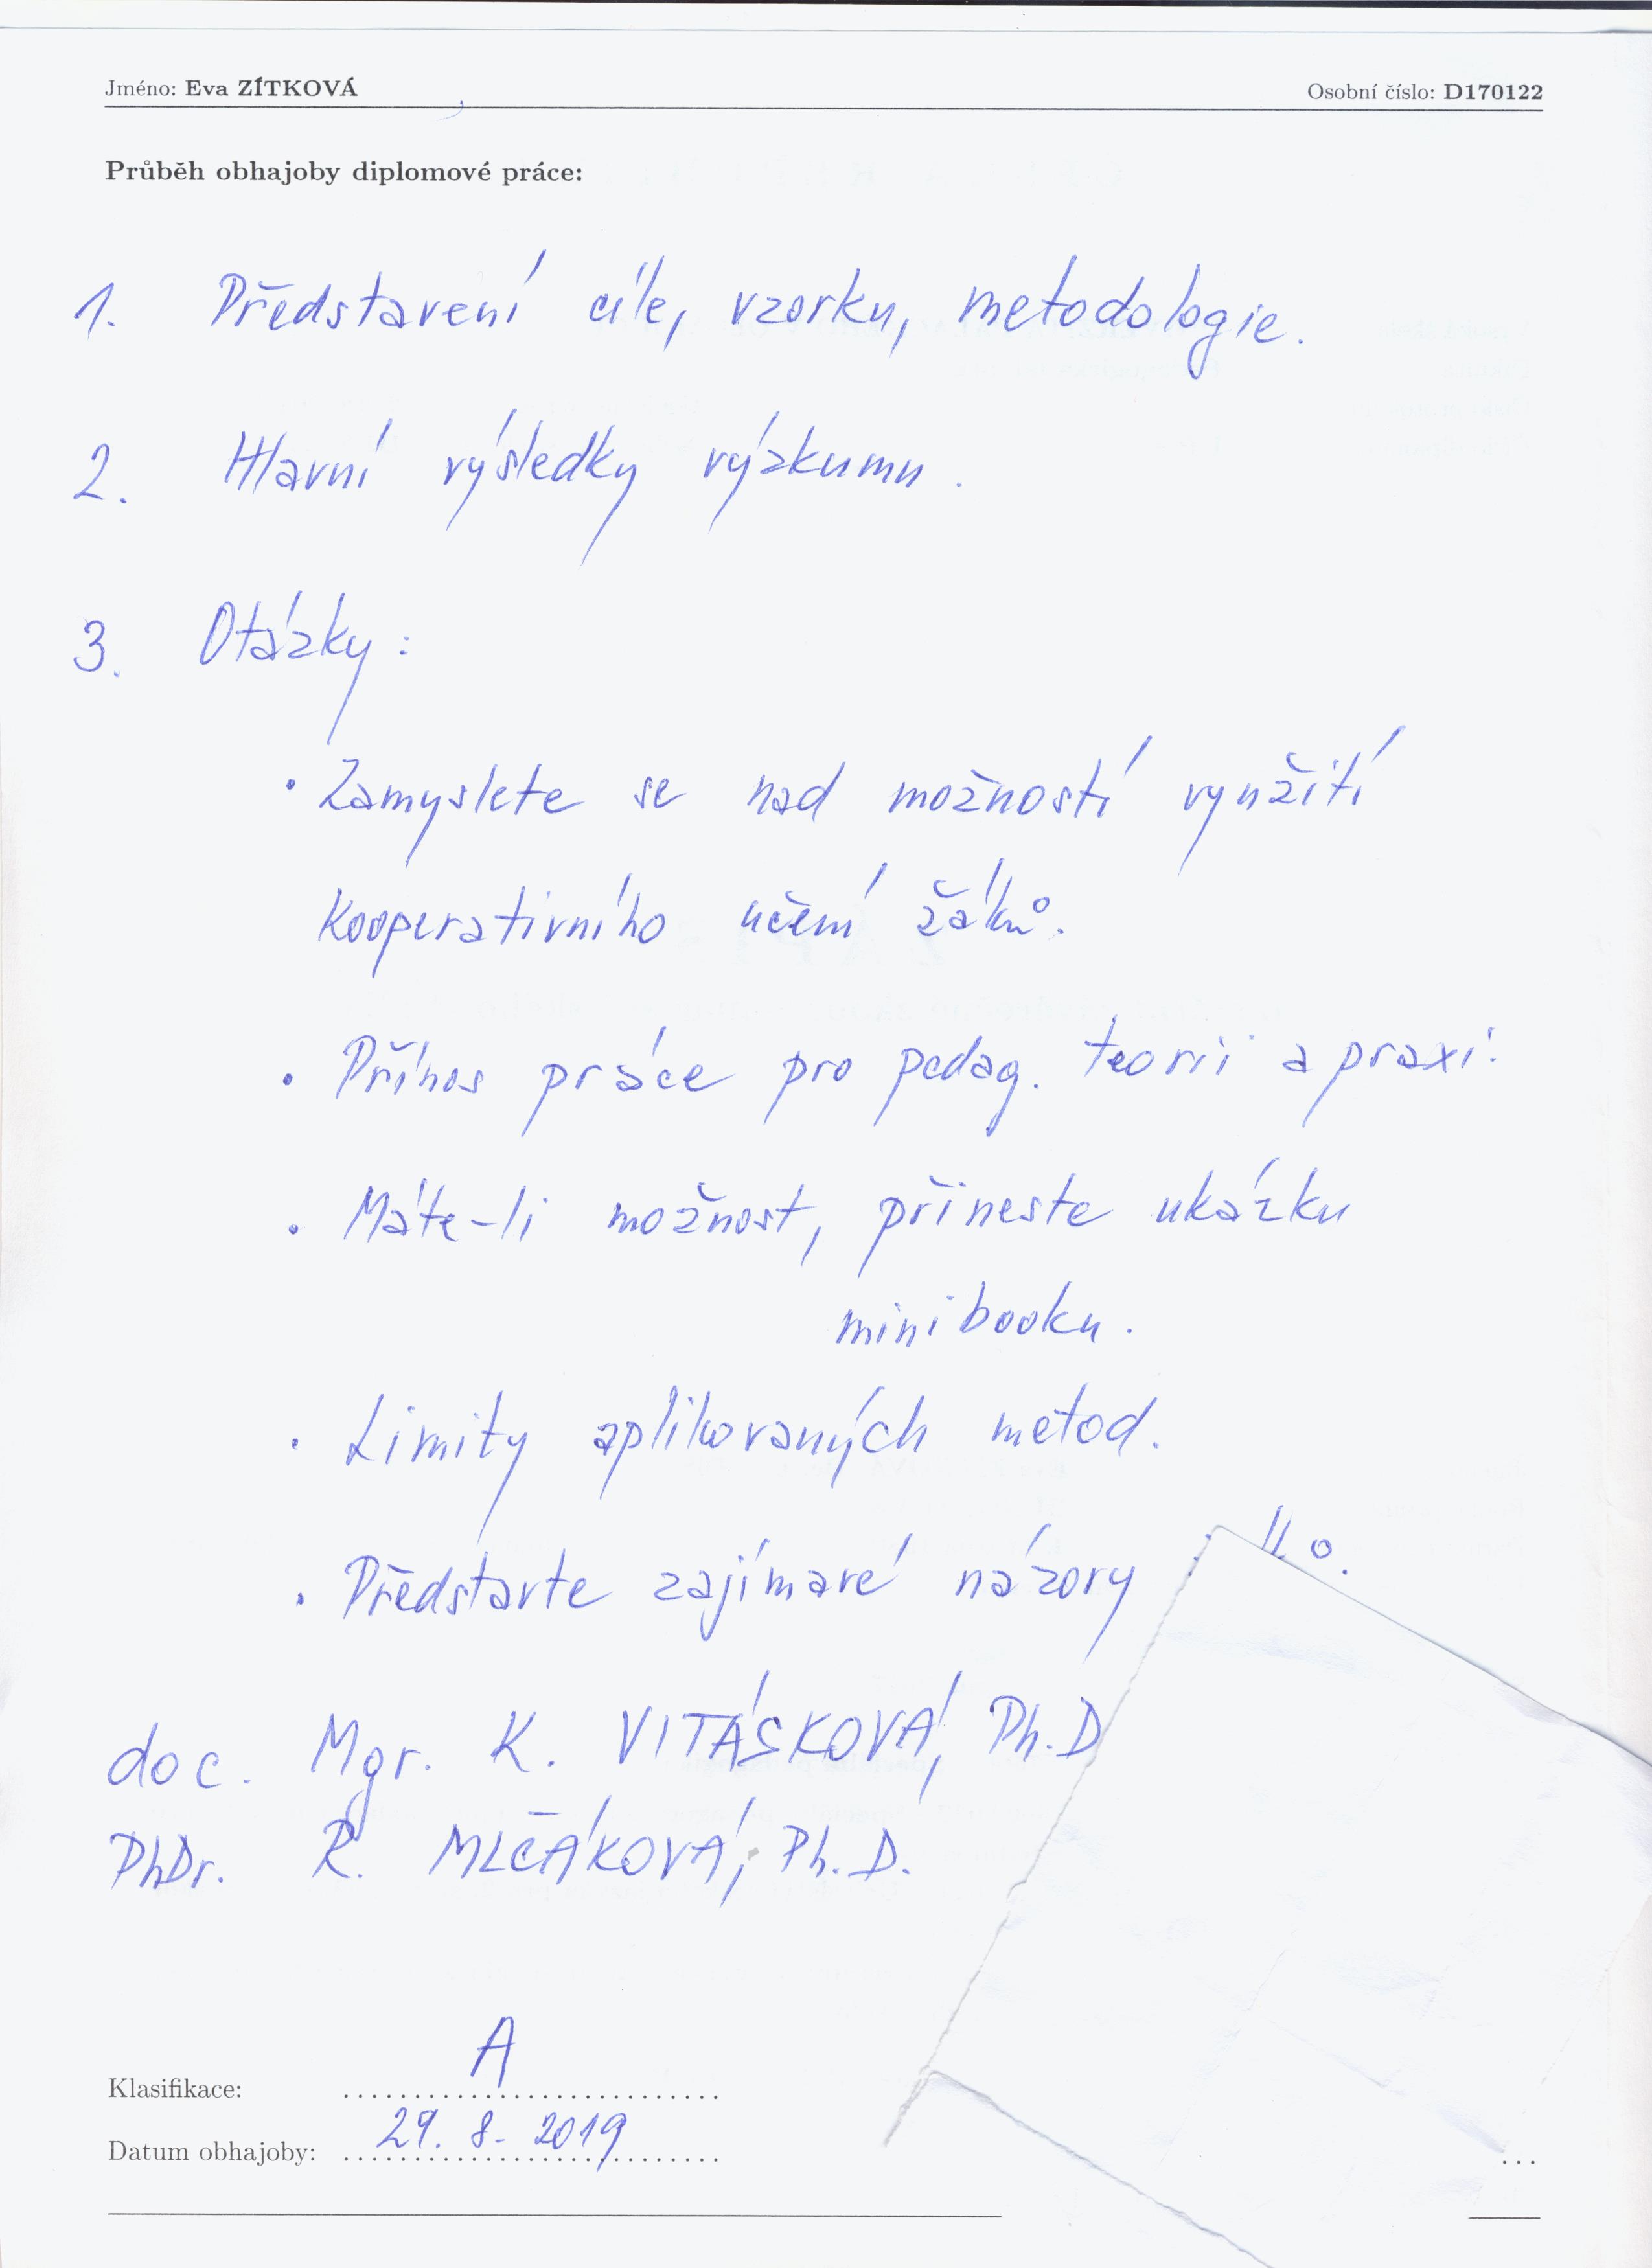 Jméno: Eva ZÍTKOVÁ Osobní číslo: D170122
Průběh obhajoby diplomové práce:
1. Představení cíle, vzorku, metodologie.
2. Hlavní výsledky výzkumu.
3. Otázky:
• Zamyslete se nad možností využití
kooperativního učení žáků.
• Přínos práce pro pedag. teorii a praxi.
• Máte-li možnost, přineste ukázku
minibooku.
• Limity aplikovaných metod.
• Představte zajímavé názory
doc. Mgr. K. VITÁSKOVÁ, Ph.D
PhDr. R. MLČÁKOVÁ, Ph.D.
A
Klasifikace: ............................
29. 8. 2019
Datum obhajoby: ............................ ...